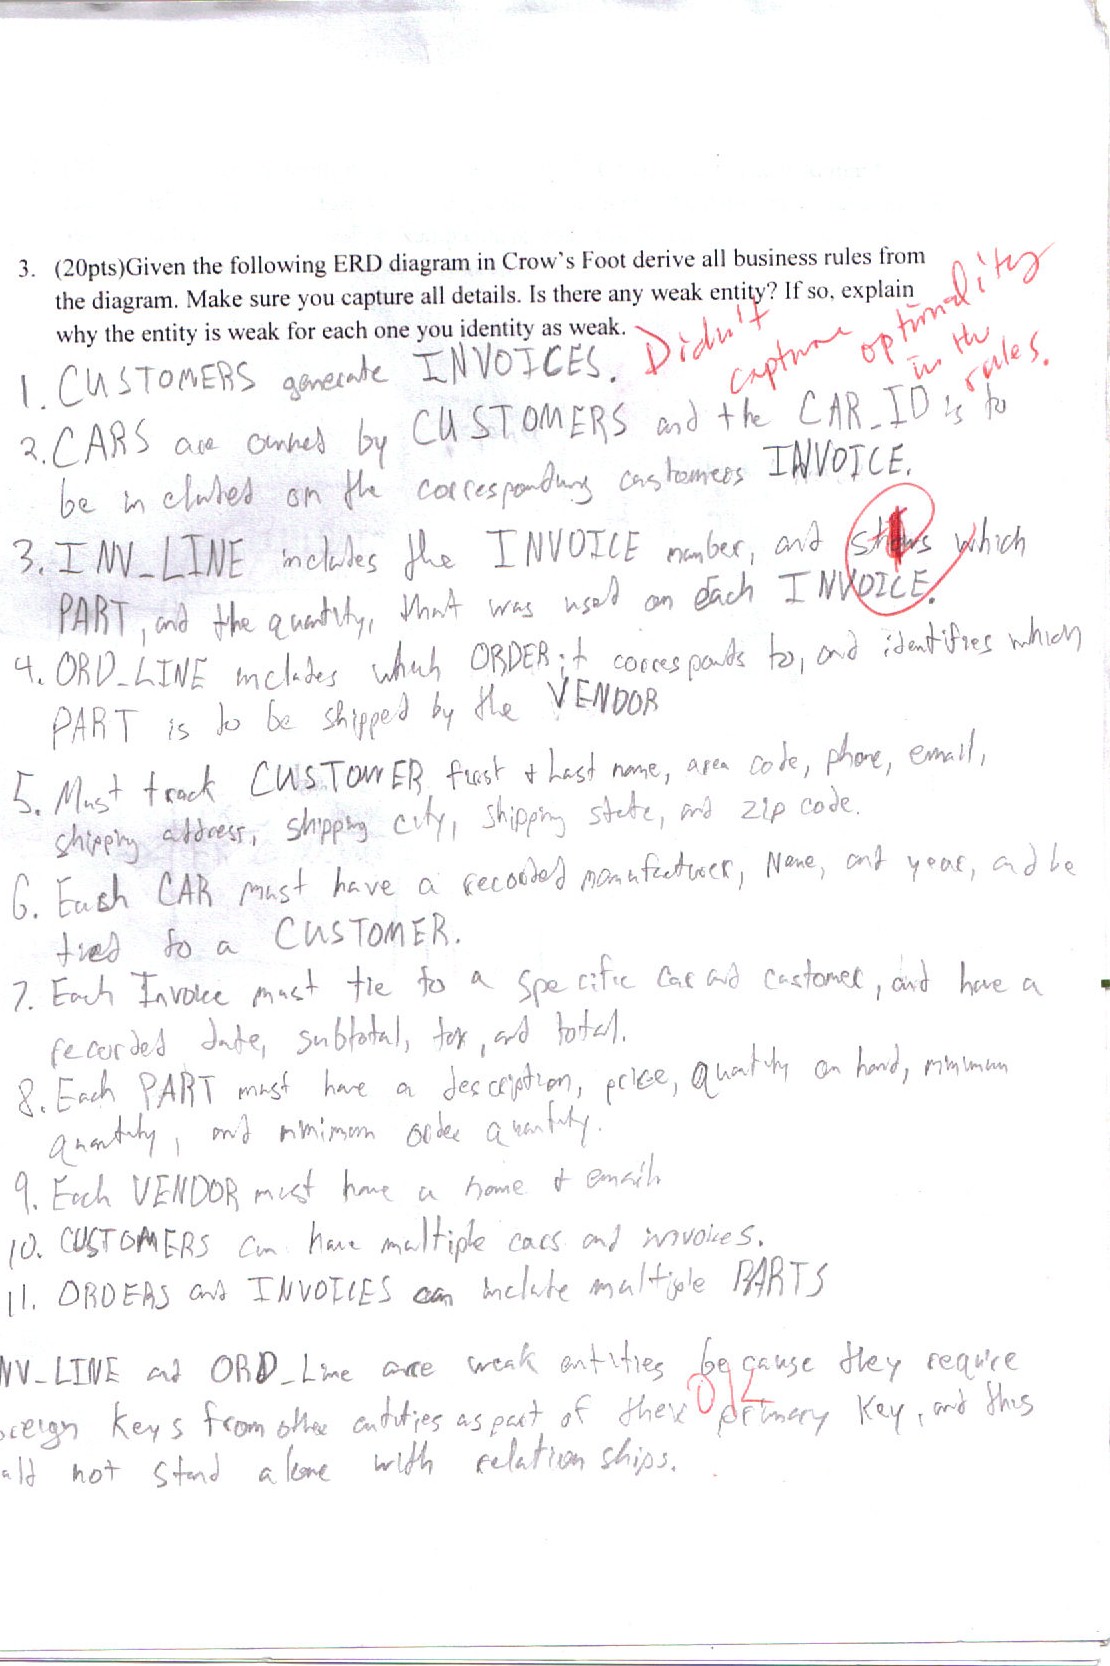 3. (20pts)Given the following ERD diagram in Crow's Foot derive all business rules from
the diagram. Make sure you capture all details. Is there any weak entity? If so, explain
why the entity is weak for each one you identity as weak.
Didn't
capture optionality
in the
rules.
1. CUSTOMERS generate INVOICES.
2. CARS are owned by CUSTOMERS and the CAR_ID is to
be included on the corresponding customers INVOICE.
3. INV_LINE includes the INVOICE number, and shows which
PART, and the quantity, that was used on each INVOICE.
4. ORD_LINE includes which ORDER it corresponds to, and identifies which
PART is to be shipped by the VENDOR
5. Must track CUSTOMER first & Last name, area code, phone, email,
shipping address, shipping city, shipping state, and zip code.
6. Each CAR must have a recorded manufacturer, Name, and year, and be
tied to a CUSTOMER.
7. Each Invoice must tie to a specific Car and customer, and have a
recorded date, subtotal, tax, and total.
8. Each PART must have a description, price, quantity on hand, minimum
quantity, and minimum order quantity.
9. Each VENDOR must have a name & email
10. CUSTOMERS can have multiple cars and invoices.
11. ORDERS and INVOICES can include multiple PARTS
NV_LINE and ORD_Line are weak entities because they require
oreign keys from other entities as part of their primary key, and thus
uld not stand alone with relationships.